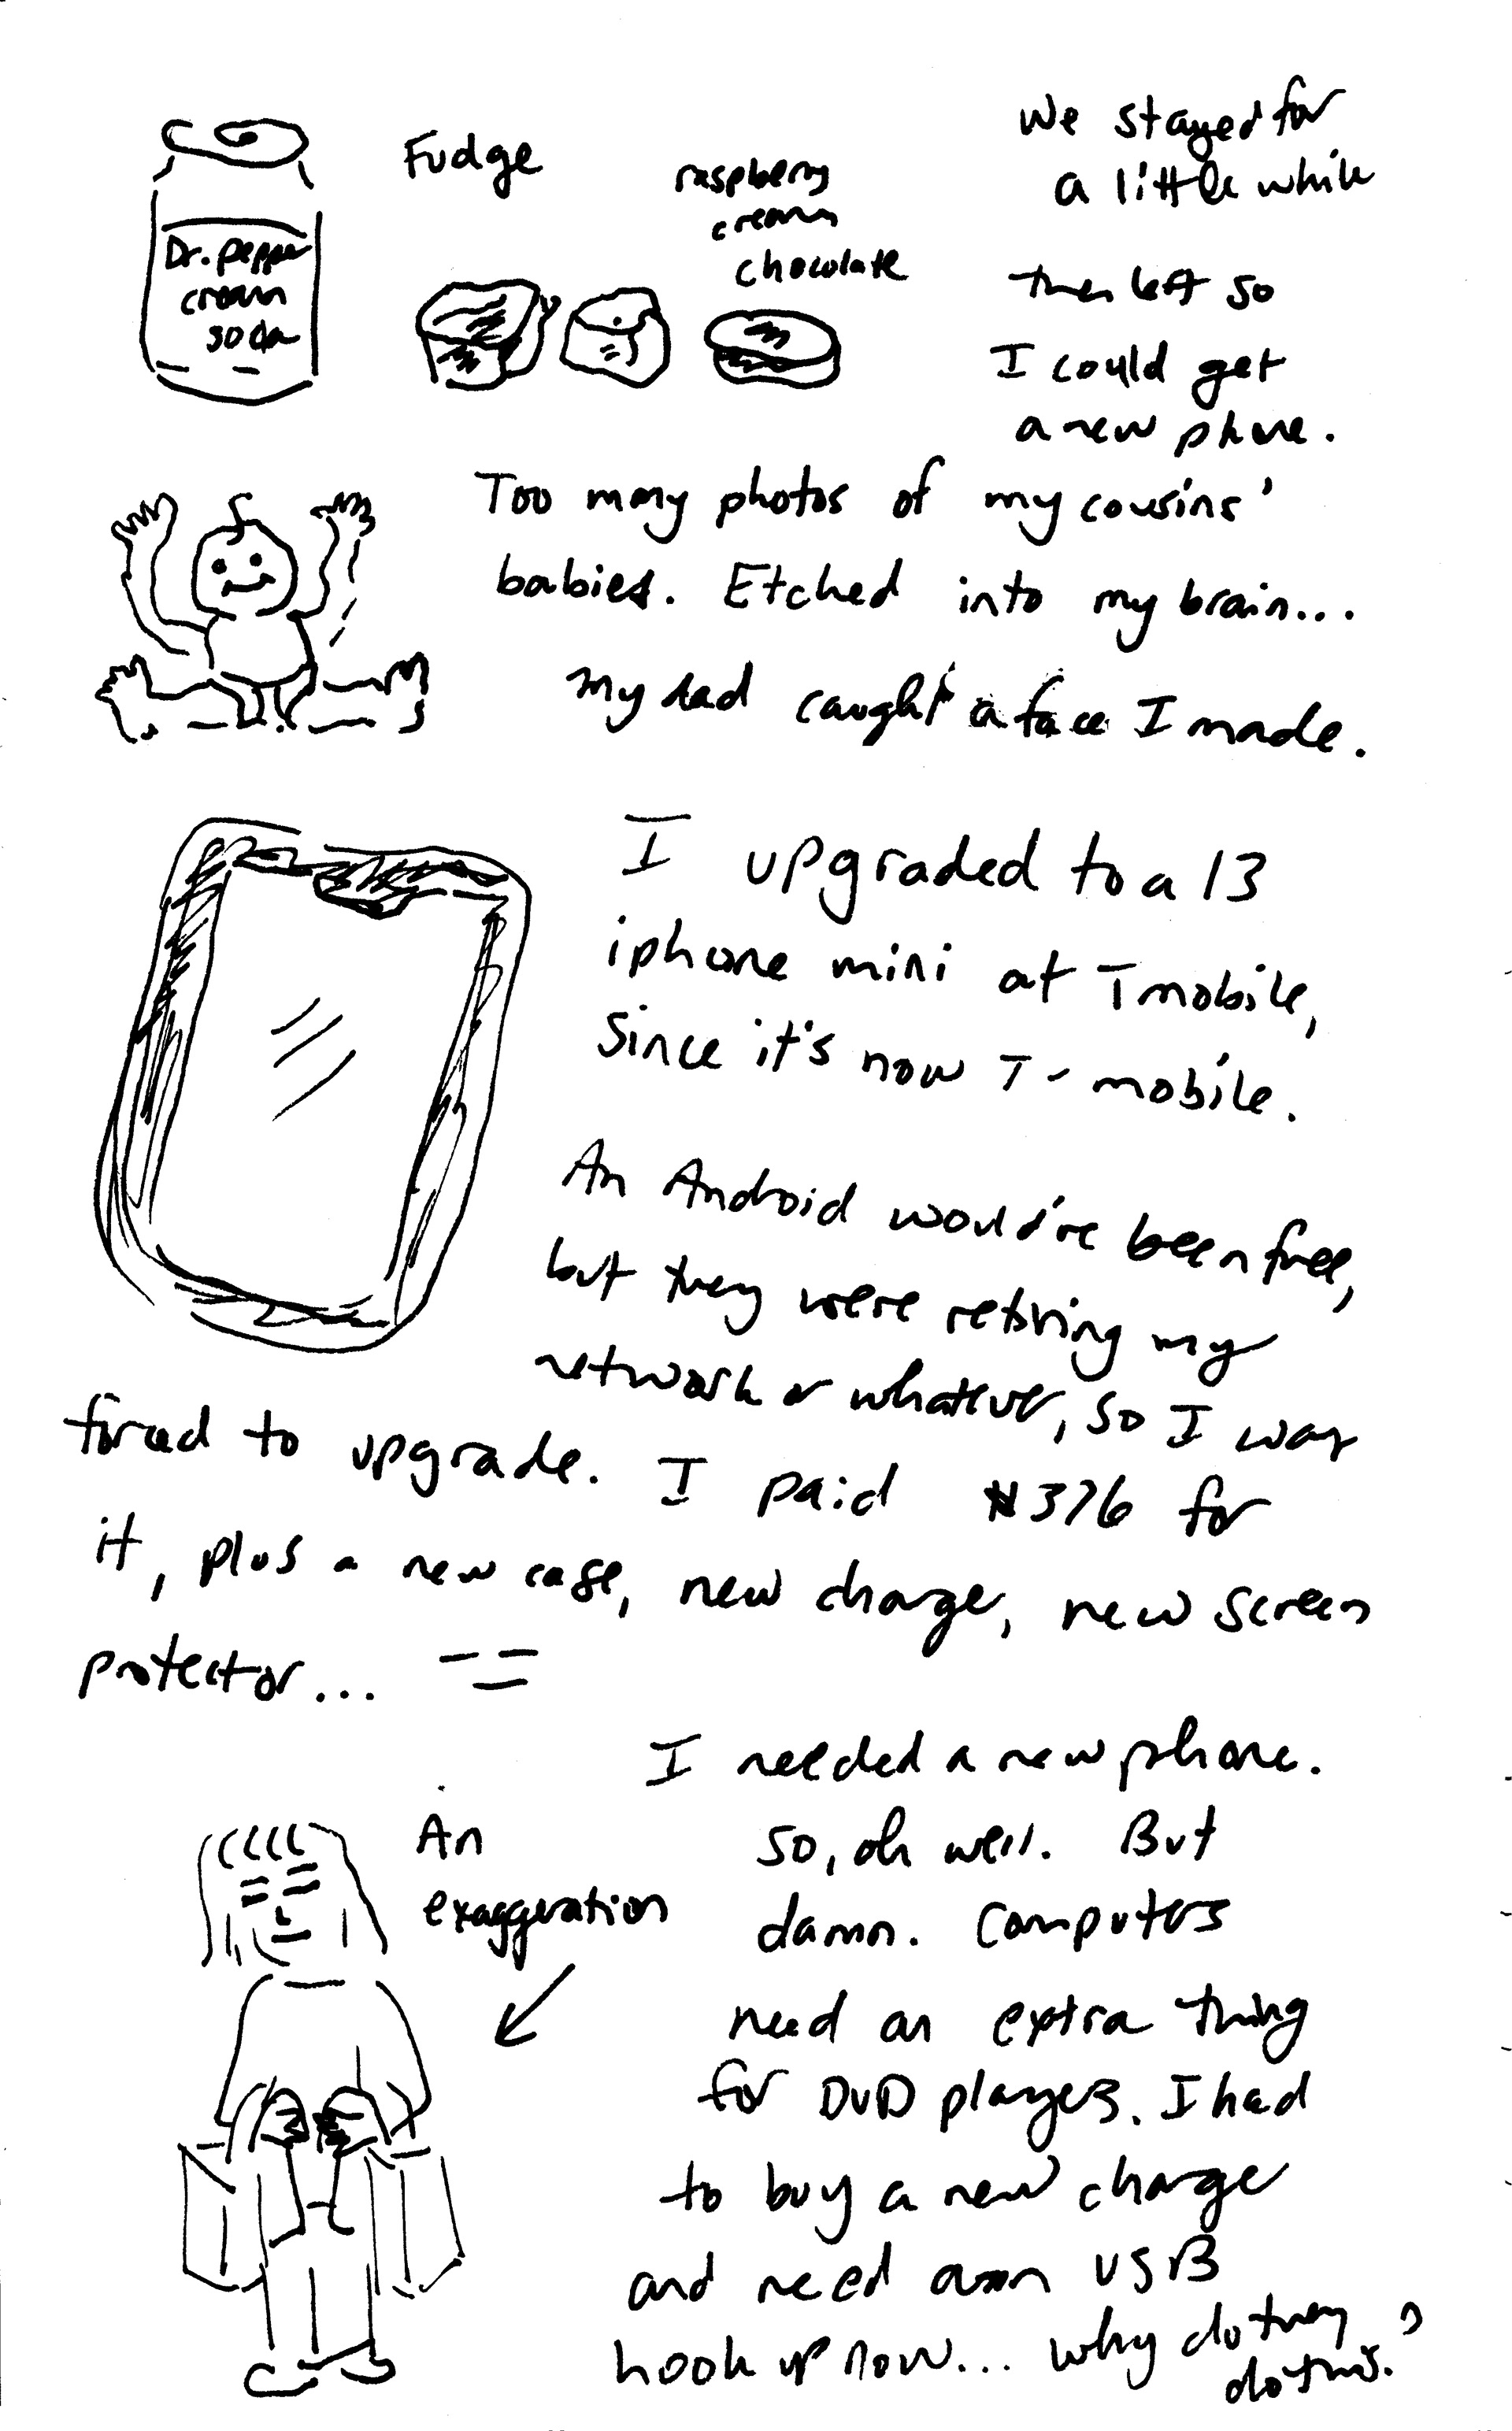 Dr. Pepper
cream
soda
Fudge
raspberry
cream
chocolate
We stayed for
a little while
then left so
I could get
a new phone.
Too many photos of my cousins'
babies. Etched into my brain...
my dad caught a face I made.
I upgraded to a 13
iphone mini at Tmobile,
Since it's now T-mobile.
An Android would've been free,
but they were retiring my
network or whatever, so I was
forced to upgrade. I paid $376 for
it, plus a new case, new charger, new screen
protector...
I needed a new phone.
An
exaggeration
so, oh well. But
damn. Computers
need an extra thing
for DVD players. I had
to buy a new charger
and need USB
hook up now... why do they
do this?